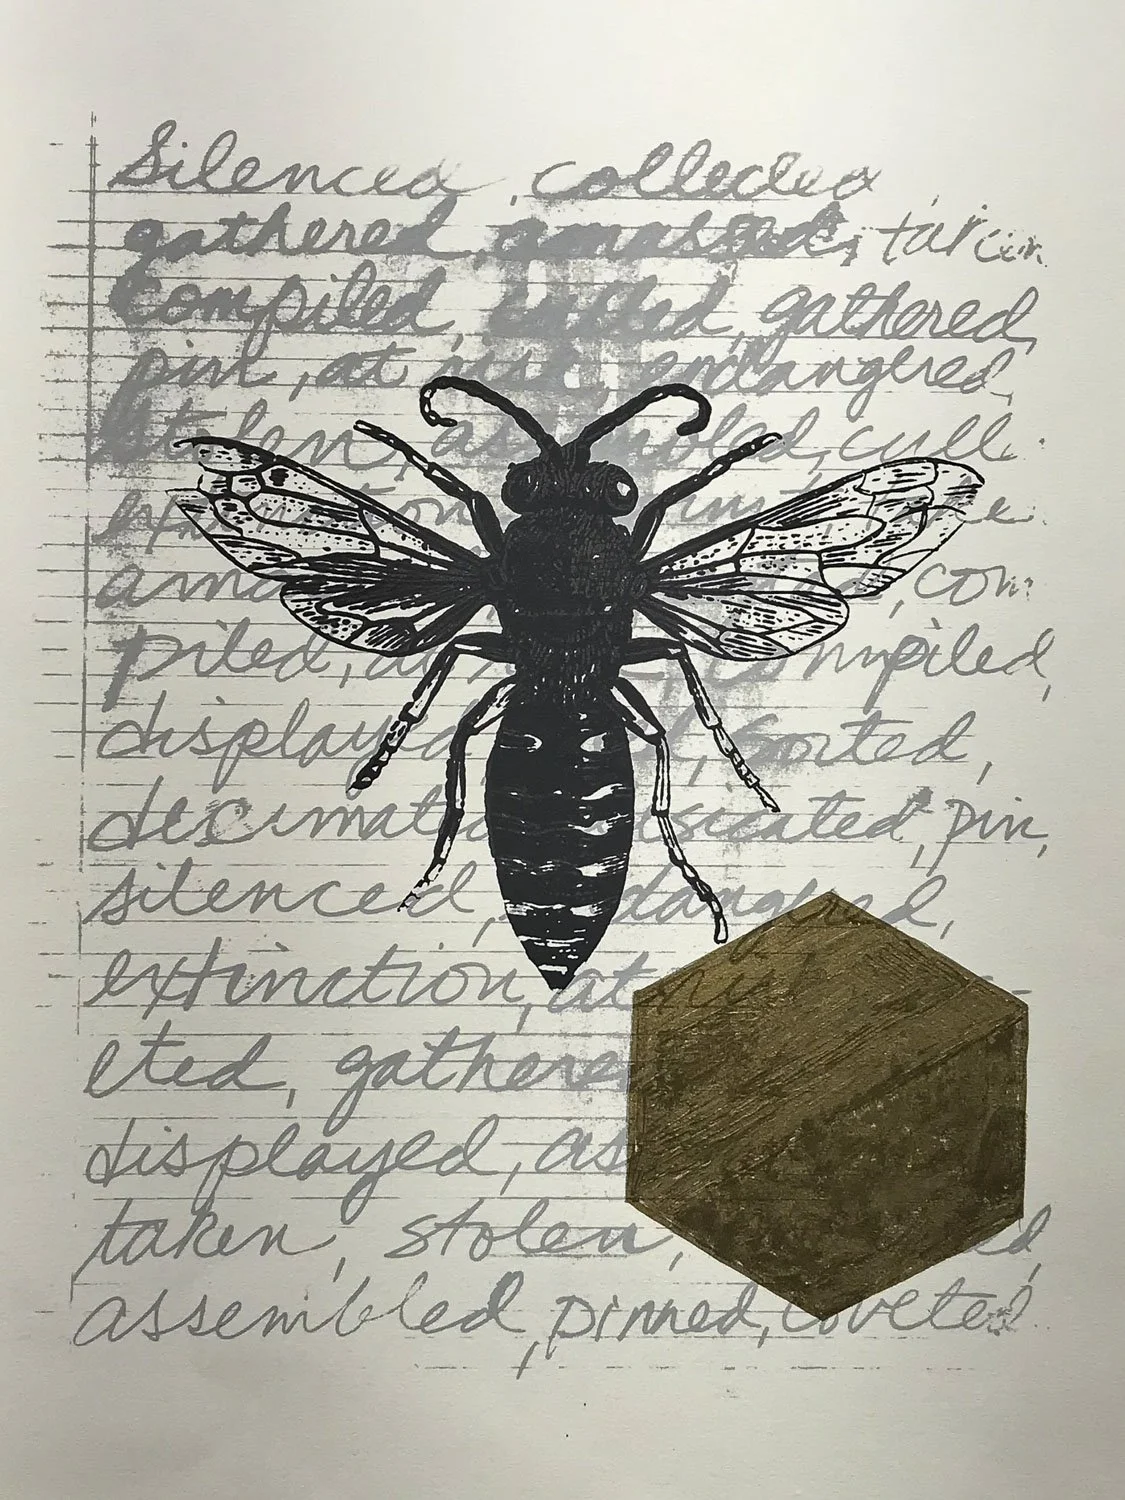 Silenced, collected
gathered, amassed, taken
Compiled, culled, gathered,
pin, at risk, endangered,
Stolen, assembled, cull
extinction
con-
piled, compiled,
displayed, sorted,
decimated, pin,
silenced, endangered,
extinction, at risk
eted, gathered
displayed, as
taken, stolen,
assembled, pinned, coveted